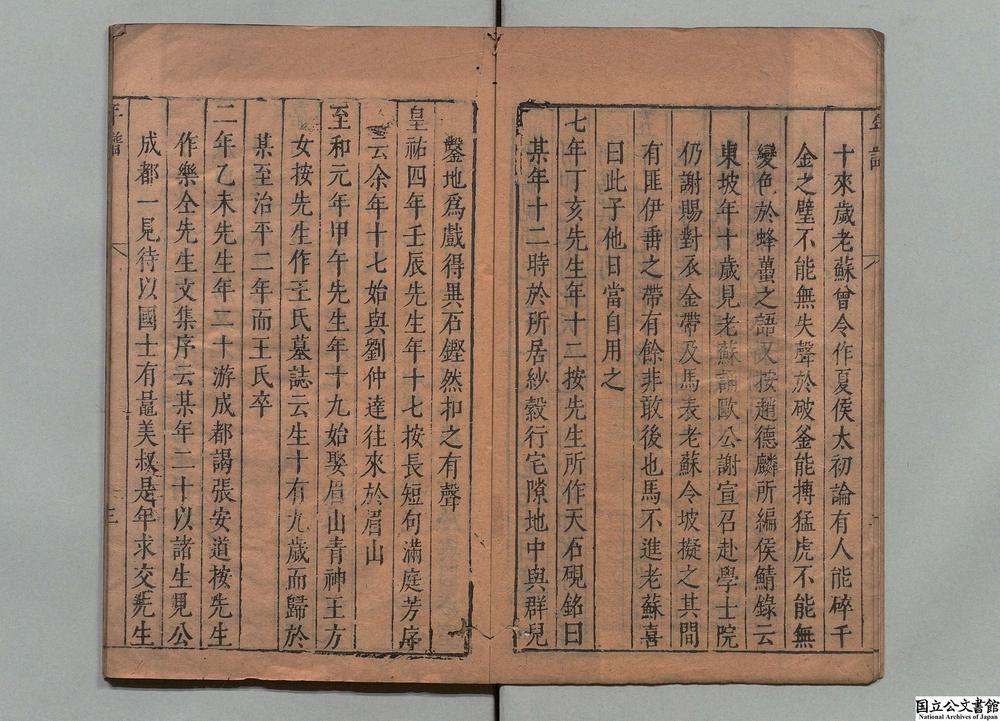 十來歲老蘇曾令作夏侯太初論有人能碎千
金之璧不能無失聲於破釜能搏猛虎不能無
變色於蜂蠆之語又按趙德麟所編侯鯖錄云
東坡年十歲見老蘇誦歐公謝宣召赴學士院
仍謝賜對衣金帶及馬表老蘇令坡擬之其間
有匪伊垂之帶有餘非敢後也馬不進老蘇喜
曰此子他日當自用之
七年丁亥先生年十二按先生所作天石硯銘曰
某年十二時於所居紗縠行宅隙地中與群兒
鑿地為戲得異石鏗然扣之有聲
皇祐四年壬辰先生年十七按長短句滿庭芳序
云余年十七始與劉仲達往來於眉山
至和元年甲午先生年十九始娶眉山青神王方
女按先生作王氏墓誌云生十有九歲而歸於
某至治平二年而王氏卒
二年乙未先生年二十游成都謁張安道按先生
作樂全先生文集序云某年二十以諸生見公
成都一見待以國士有晁美叔是年求交先生
年譜
三
国立公文書館
National Archives of Japan